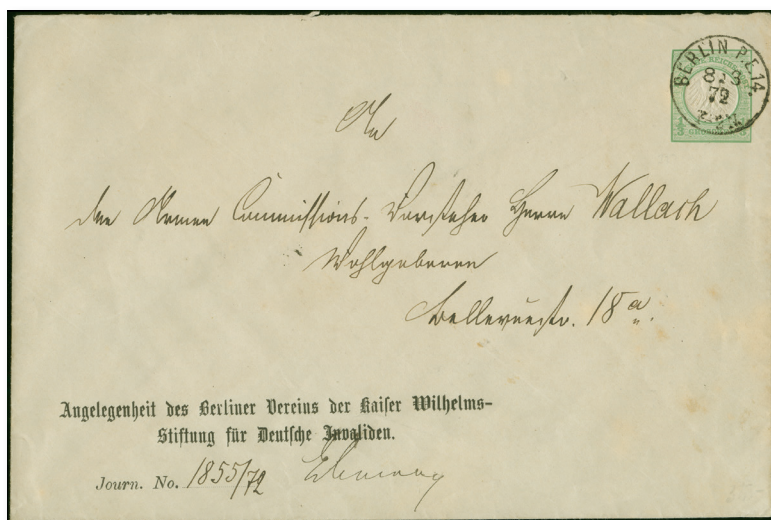 BERLIN P.E. 14.
8 3
72
1/3 GROSCHEN
An
den Armen Commissions-Vorsteher Herrn Wallach
Wohlgeboren
Bellevuestr. 18a.
Angelegenheit des Berliner Vereins der Kaiser Wilhelms-
Stiftung für Deutsche Invaliden.
Journ. No. 1855/72